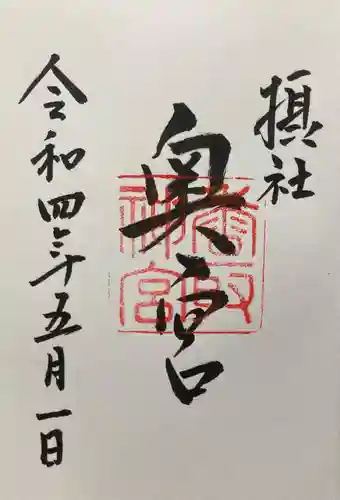 摂社
奥宮
鹿取神宮
令和四年五月一日